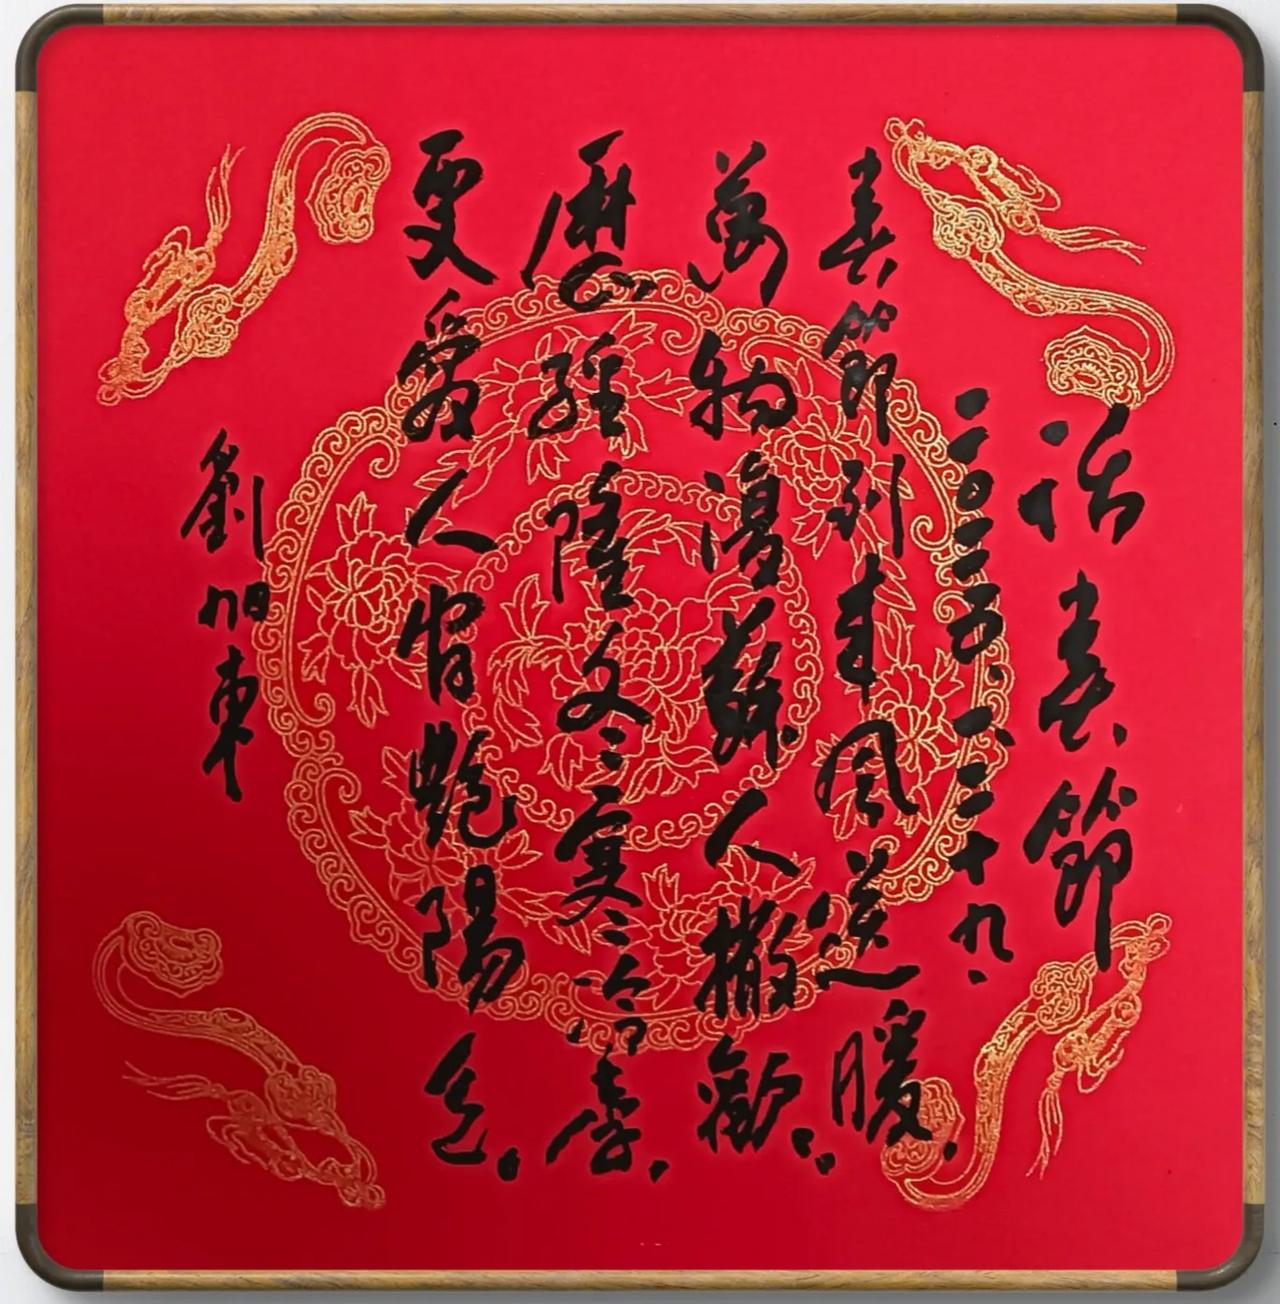 话春節
二〇二五.一.二十九.
春節到来風送暖,
萬物復蘇人撒歡。
歷經隆冬寒冷季,
更愛人間艷陽色。
劉旭東